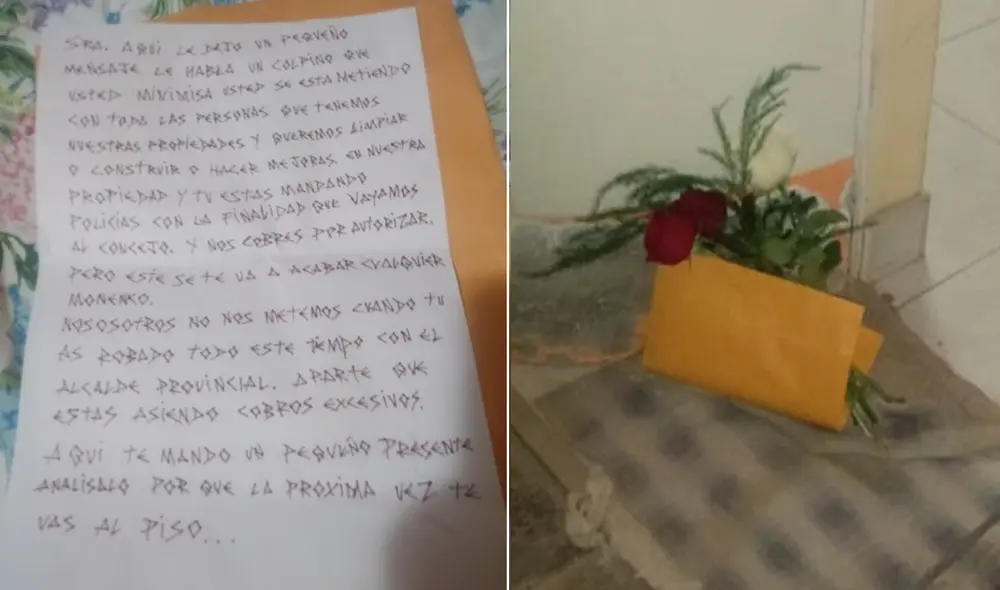 SRA. AQUI LE DEJO UN PEQUEÑO
MENSAJE LE HABLA UN COLPINO QUE
USTED MINIMISA USTED SE ESTA METIENDO
CON TODA LAS PERSONAS QUE TENEMOS
NUESTRAS PROPIEDADES Y QUEREMOS LIMPIAR
O CONSTRUIR O HACER MEJORAS EN NUESTRA
PROPIEDAD Y TU ESTAS MANDANDO
POLICIAS CON LA FINALIDAD QUE VAYAMOS
AL CONCEJO. Y NOS COBRES POR AUTORIZAR.
PERO ESTE SE TE VA A ACABAR CUALQUIER
MONENKO.
NOSOSOTROS NO NOS METEMOS CUANDO TU
AS ROBADO TODO ESTE TIEMPO CON EL
ALCALDE PROVINCIAL. APARTE QUE
ESTAS ASIENDO COBROS EXCESIVOS.
AQUI TE MANDO UN PEQUEÑO PRESENTE
ANALISALO POR QUE LA PROXIMA VEZ TE
VAS AL PISO...